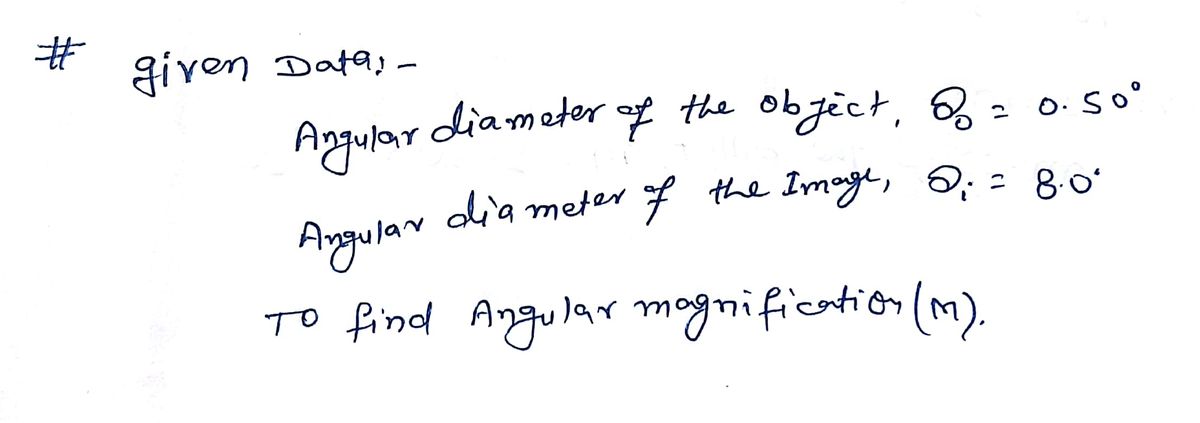 # given Data: -
Angular diameter of the object, θ₀ = 0.50°
Angular diameter of the Image, θᵢ = 8.0°
To find Angular magnification (M).